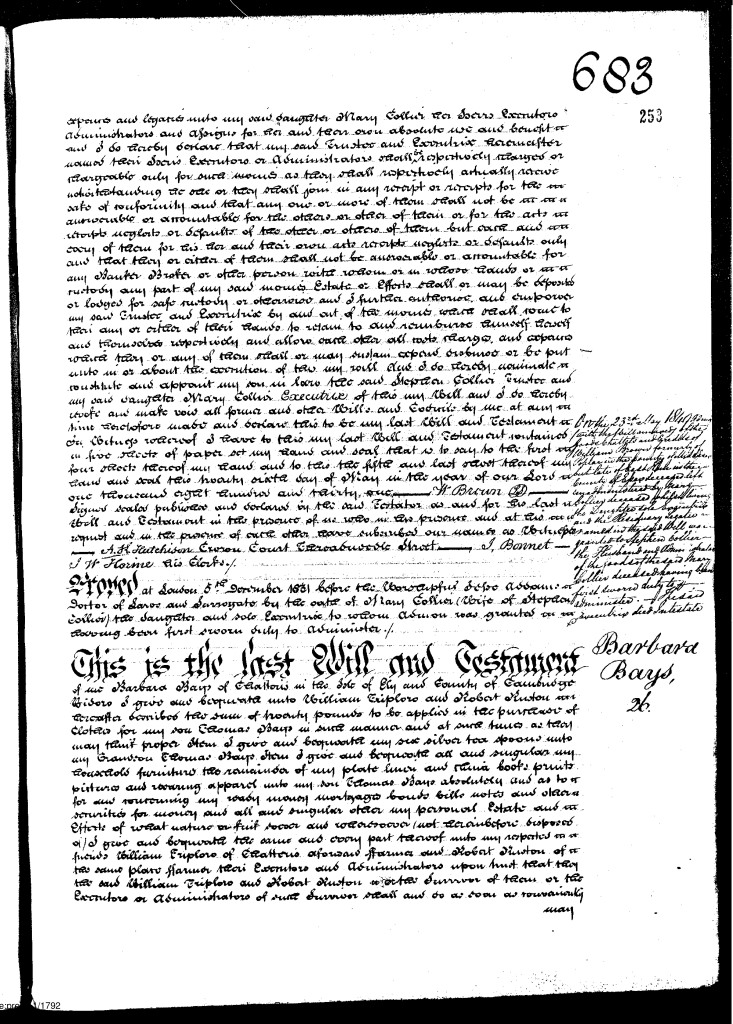 683
253
expences and legacies unto my said daughter Mary Collier her Heirs Executors
Administrators and Assigns for her and their own absolute use and benefit
and I do hereby declare that my said Trustee and Executrix hereinafter
named their Heirs Executors or Administrators shall be respectively charged or
chargeable only for such monies as they shall respectively actually receive
notwithstanding he she or they shall join in any receipt or receipts for the
sake of conformity and that any one or more of them shall not be
answerable or accountable for the others or other of them or for the acts
receipts neglects or defaults of the other or others of them but each and
every of them for his her and their own acts receipts neglects or defaults only
and that they or either of them shall not be answerable or accountable for
any Banker Broker or other person with whom or in whose hands or
custody any part of my said monies Estate or Effects shall or may be deposited
or lodged for safe custody or otherwise and I further authorize and empower
my said Trustee and Executrix by and out of the monies which shall come to
their any or either of their hands to retain to and reimburse himself herself
and themselves respectively and allow each other all costs charges and expences
which they or any of them shall or may sustain expend disburse or be put
unto in or about the execution of this my will And I do hereby nominate
constitute and appoint my son in law the said Stephen Collier Trustee and
my said daughter Mary Collier Executrix of this my Will and I do hereby
revoke and make void all former and other Wills and Codicils by me at any
time heretofore made and declare this to be my last Will and Testament
In Witness whereof I have to this my last Will and Testament contained
in five sheets of paper set my hand and seal that is to say to the first
four sheets thereof my hand and to this the fifth and last sheet thereof my
hand and seal this twenty sixth day of May in the year of our Lord
one thousand eight hundred and thirty one — W Brown
Signed sealed published and declared by the said Testator as and for his last
Will and Testament in the presence of us who in his presence and at his
request and in the presence of each other have subscribed our names as Witnesses
— A. H. Hutchison Crown Court Threadneedle Street — J. Bonnet —
J W his Clerks /.
Proved at London 5th December 1831 before the Worshipful Addams
Doctor of Laws and Surrogate by the oath of Mary Collier (Wife of Stephen
Collier) the daughter and sole Executrix to whom Admon was granted
having been first sworn duly to Administer /.
On the 23rd May 1840 Admon
with the Will annexed of the
goods chattels and credits of
William Brown formerly of
in the County of Middlesex
but late of East Ham in the
County of Essex deceased left
unadministered by Mary
Collier deceased whilst living
the Daughter sole Executrix
and the Residuary Legatee
named in the said Will was
granted to Stephen Collier
the Husband and Admin
of the goods of the said Mary
Collier deceased having been
first sworn duly to
administer. — The said
Executrix died Intestate
This is the last Will and Testament
of me Barbara Bays of Chatteris in the Isle of Ely and County of Cambridge
Widow I give and bequeath unto William Triplow and Robert Ruston
hereafter described the sum of twenty pounds to be applied in the purchase of
Clothes for my son Thomas Bays in such manner and at such times as they
may think proper Item I give and bequeath my six silver tea spoons unto
my Grandson Thomas Bays Item I give and bequeath all and singular my
household furniture the remainder of my plate linen and china books prints
pictures and wearing apparel unto my son Thomas Bays absolutely and as to
for and concerning my ready money mortgages bonds bills notes and other
securities for money and all and singular other my personal Estate and
Effects of what nature or kind soever and wheresoever (not hereinbefore disposed
of) I give and bequeath the same and every part thereof unto my respected
friends William Triplow of Chatteris aforesaid ffarmer and Robert Ruston of
the same place ffarmer their Executors and Administrators upon trust that they
the said William Triplow and Robert Ruston or the Survivor of them or the
Executors or Administrators of such Survivor shall and do as soon as conveniently
may
Barbara
Bays,
26.
1/1792